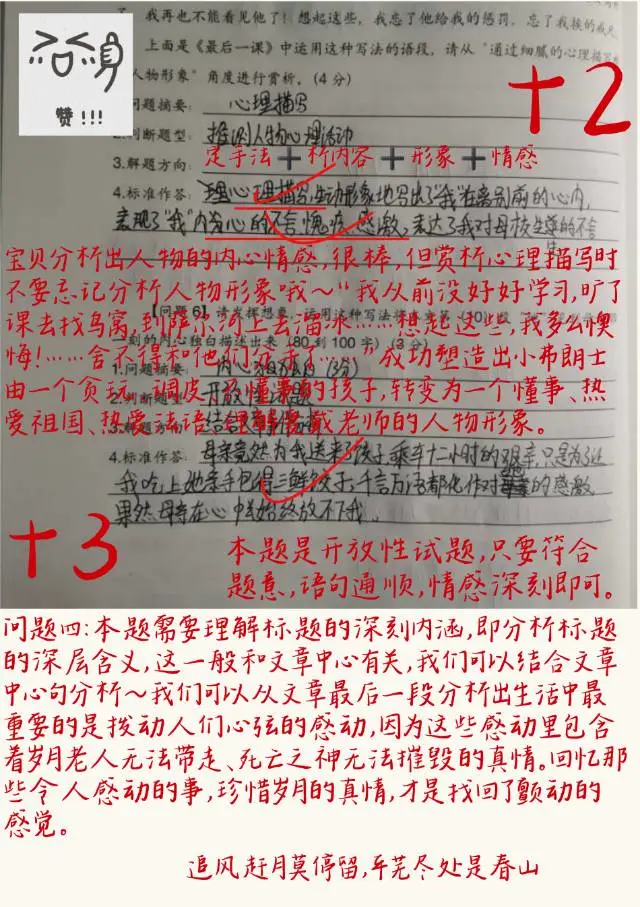 了，我再也不能看见他了！想起这些，我忘了他给我的惩罚，忘了我挨的戒尺
上面是《最后一课》中运用这种写法的语段，请从“通过细腻的心理描写
人物形象”角度进行赏析。(4分)
赞!!!
+2
问题摘要： 心理描写
2.判断题型： 推测人物心理活动
3.解题方向：
定手法+析内容+形象+情感
4.标准作答： 心理描写,生动形象地写出了“我”在离别前的心内,
表现了“我”内心的不舍,愧疚,感激,表达了我对母校 的不舍
宝贝分析出人物的内心情感,很棒,但赏析心理描写时
不要忘记分析人物形象哦~“我从前没好好学习,旷了
课去找鸟窝,到萨尔河上去溜冰……想起这些,我多么懊
悔!……舍不得和他们分手了……”成功塑造出小弗朗士
由一个贪玩、调皮、不懂事的孩子,转变为一个懂事、热
爱祖国、热爱法语、 戴老师的人物形象。
【问题6】请发挥想象，运用这种写法将文章第(10)
刻的内心独白描述出来(80到100字)(3分)
1.问题摘要： 内心独白
2.判断题型： 开放
3.解题方向： 结合
4.标准作答： 母亲竟然为我送来了饺子,乘车十二小时的艰辛,只是为了让
我吃上她亲手包得三鲜饺子,千言万语都化作对 的感激
果然母 在心中 始终放不下我。
+3
本题是开放性试题,只要符合
题意,语句通顺,情感深刻即可。
问题四:本题需要理解标题的深刻内涵,即分析标题
的深层含义,这一般和文章中心有关,我们可以结合文章
中心句分析~我们可以从文章最后一段分析出生活中最
重要的是拨动人们心弦的感动,因为这些感动里包含
着岁月老人无法带走、死亡之神无法摧毁的真情。回忆那
些令人感动的事,珍惜岁月的真情,才是找回了颤动的
感觉。
追风赶月莫停留,平芜尽处是春山